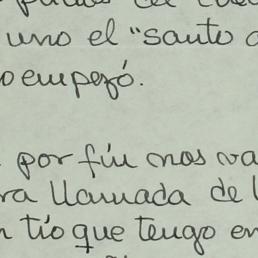 uno el "santo
empezó.
por fin nos va
ra llamada de l
tío que tengo en